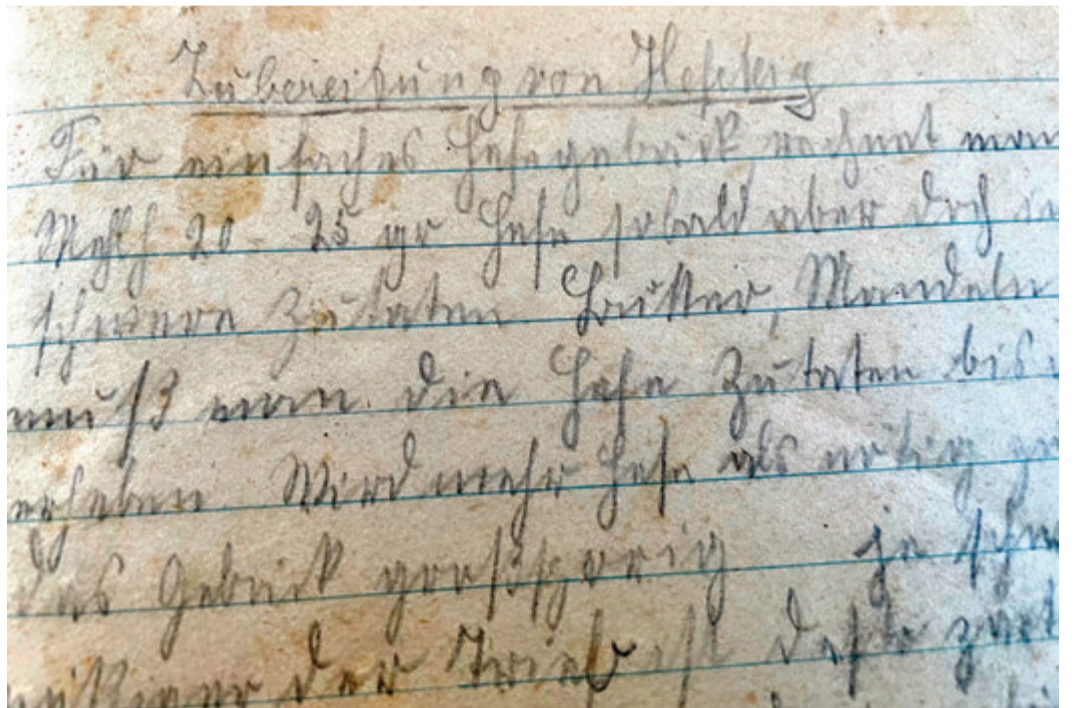 Zubereitung von Hefeteig
Für einfaches Hefegebäck rechnet man
Mehl 20 - 25 gr Hefe sobald aber doch
schwere Zutaten Butter, Mandeln
muß man die Hefe Zutaten bis
erheben Wird mehr Hefe als nötig
das Gebäck großporig je
der Trieb ist desto